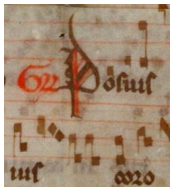 Gr Posuis
ius coro